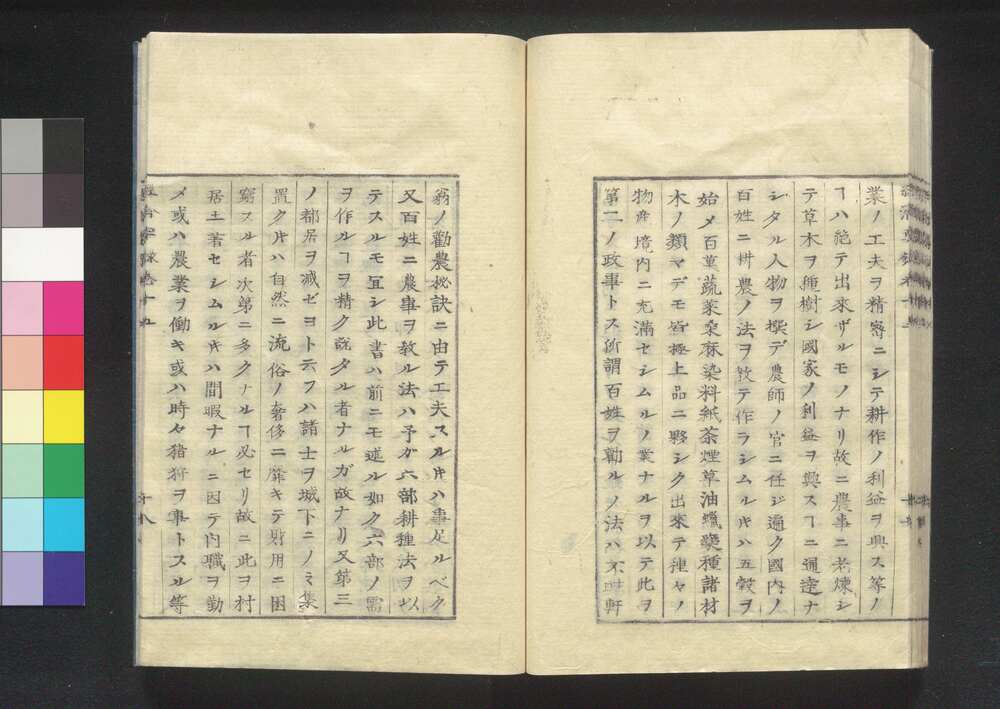 業ノ工夫ヲ精密ニシテ耕作ノ利益ヲ興ス等ノ
ヿハ絶テ出來ザルモノナリ故ニ農事ニ老煉シ
テ草木ヲ種樹シ國家ノ利益ヲ興スヿニ通達ナ
シタル人物ヲ撰デ農師ノ官ニ任ジ遍ク國内ノ
百姓ニ耕農ノ法ヲ敎テ作ラシムル𪜈ハ五穀ヲ
始メ百菓蔬菜桑麻染料紙茶煙草油蠟藥種諸材
木ノ類マデモ皆極上品ニ夥シク出來テ種々ノ
物産境内ニ充滿セシムルノ業ナルヲ以テ此ヲ
第二ノ政事トス所謂百姓ヲ勸ルノ法ハ不昧軒
翁ノ勸農秘訣ニ由テ工夫スル𪜈ハ事足ルベク
又百姓ニ農事ヲ敎ル法ハ予ガ六部耕種法ヲ以
テスルモ宜シ此書ハ前ニモ述ル如ク六部ノ需
ヲ作ルヿヲ精ク説タル者ナルガ故ナリ又第三
ノ都居ヲ減ゼヨト云フハ諸士ヲ城下ニノミ集
置ク𪜈ハ自然ニ流俗ノ奢侈ニ靡キテ財用ニ困
窮スル者次第ニ多クナルヿ必セリ故ニ此ヲ村
居土著セシムル𪜈ハ間暇ナルニ因テ内職ヲ勤
メ或ハ農業ヲ働キ或ハ時々猪狩ヲ事トスル等